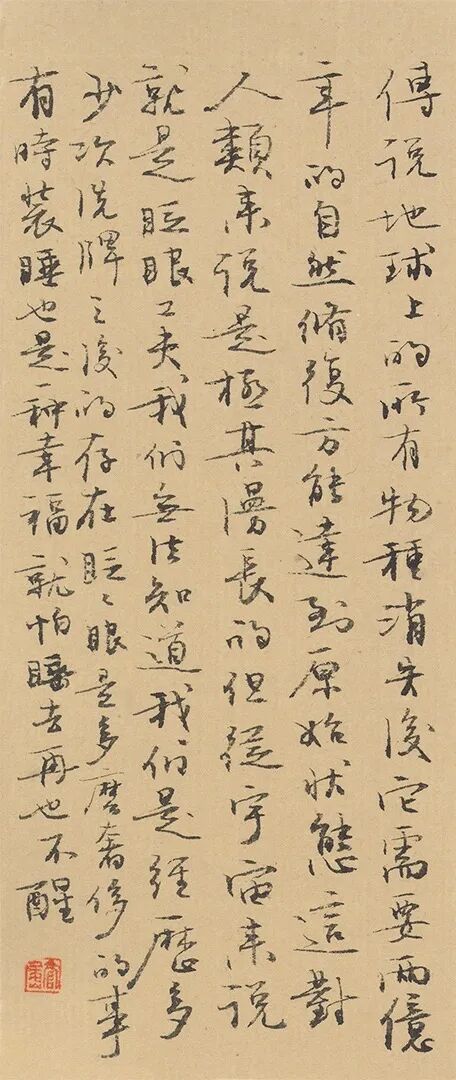 傳说地球上的所有物種消失後它需要兩億
年的自然脩復方能達到原始狀態這對
人類来说是極其漫長的但從宇宙来说
就是眨眼工夫我们無法知道我们是經歷多
少次洗牌之後的存在眨〻眼是多麽奢侈的事
有時装睡也是一种幸福就怕睡去再也不醒